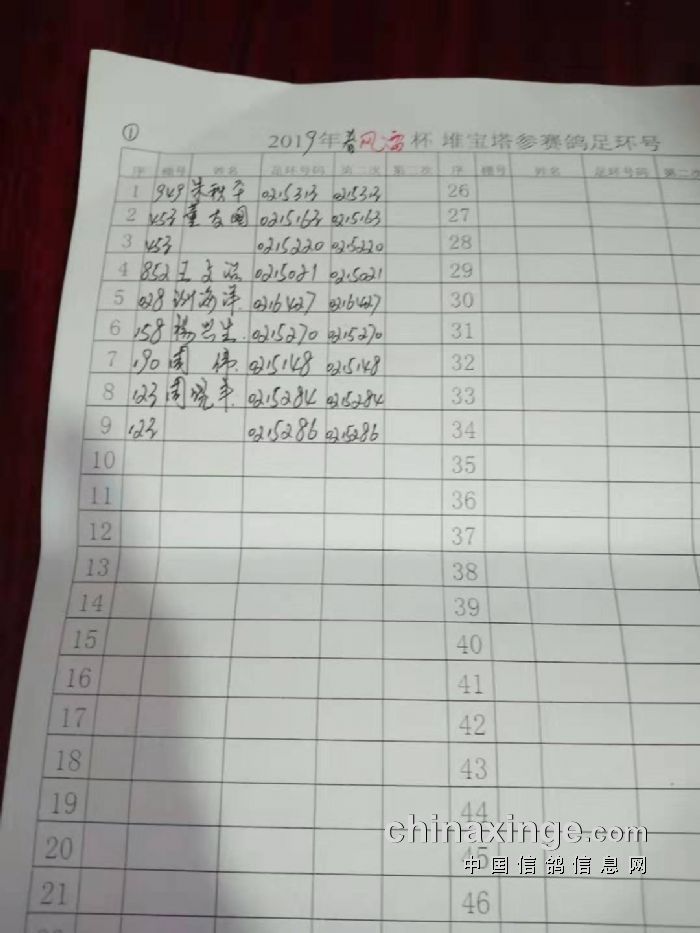 ①
2019年春风雷杯 堆宝塔参赛鸽足环号
序 棚号 姓名 足环号码 第二次 第二次 序 棚号 姓名 足环号码 第二次
1 949 朱秋平 0215313 0215313 26
2 453 董友国 0215163 0215163 27
3 453 0215220 0215220 28
4 852 王 0215021 0215021 29
5 028 海洋 0216427 0216427 30
6 158 杨兴生 0215270 0215270 31
7 190 周伟 0215148 0215148 32
8 123 周晓丰 0215284 0215284 33
9 123 0215286 0215286 34
10 35
11 36
12 37
13 38
14 39
15 40
16 41
17 42
18 43
19 44
20 45
21 46
chinaxinge.com
中国信鸽信息网